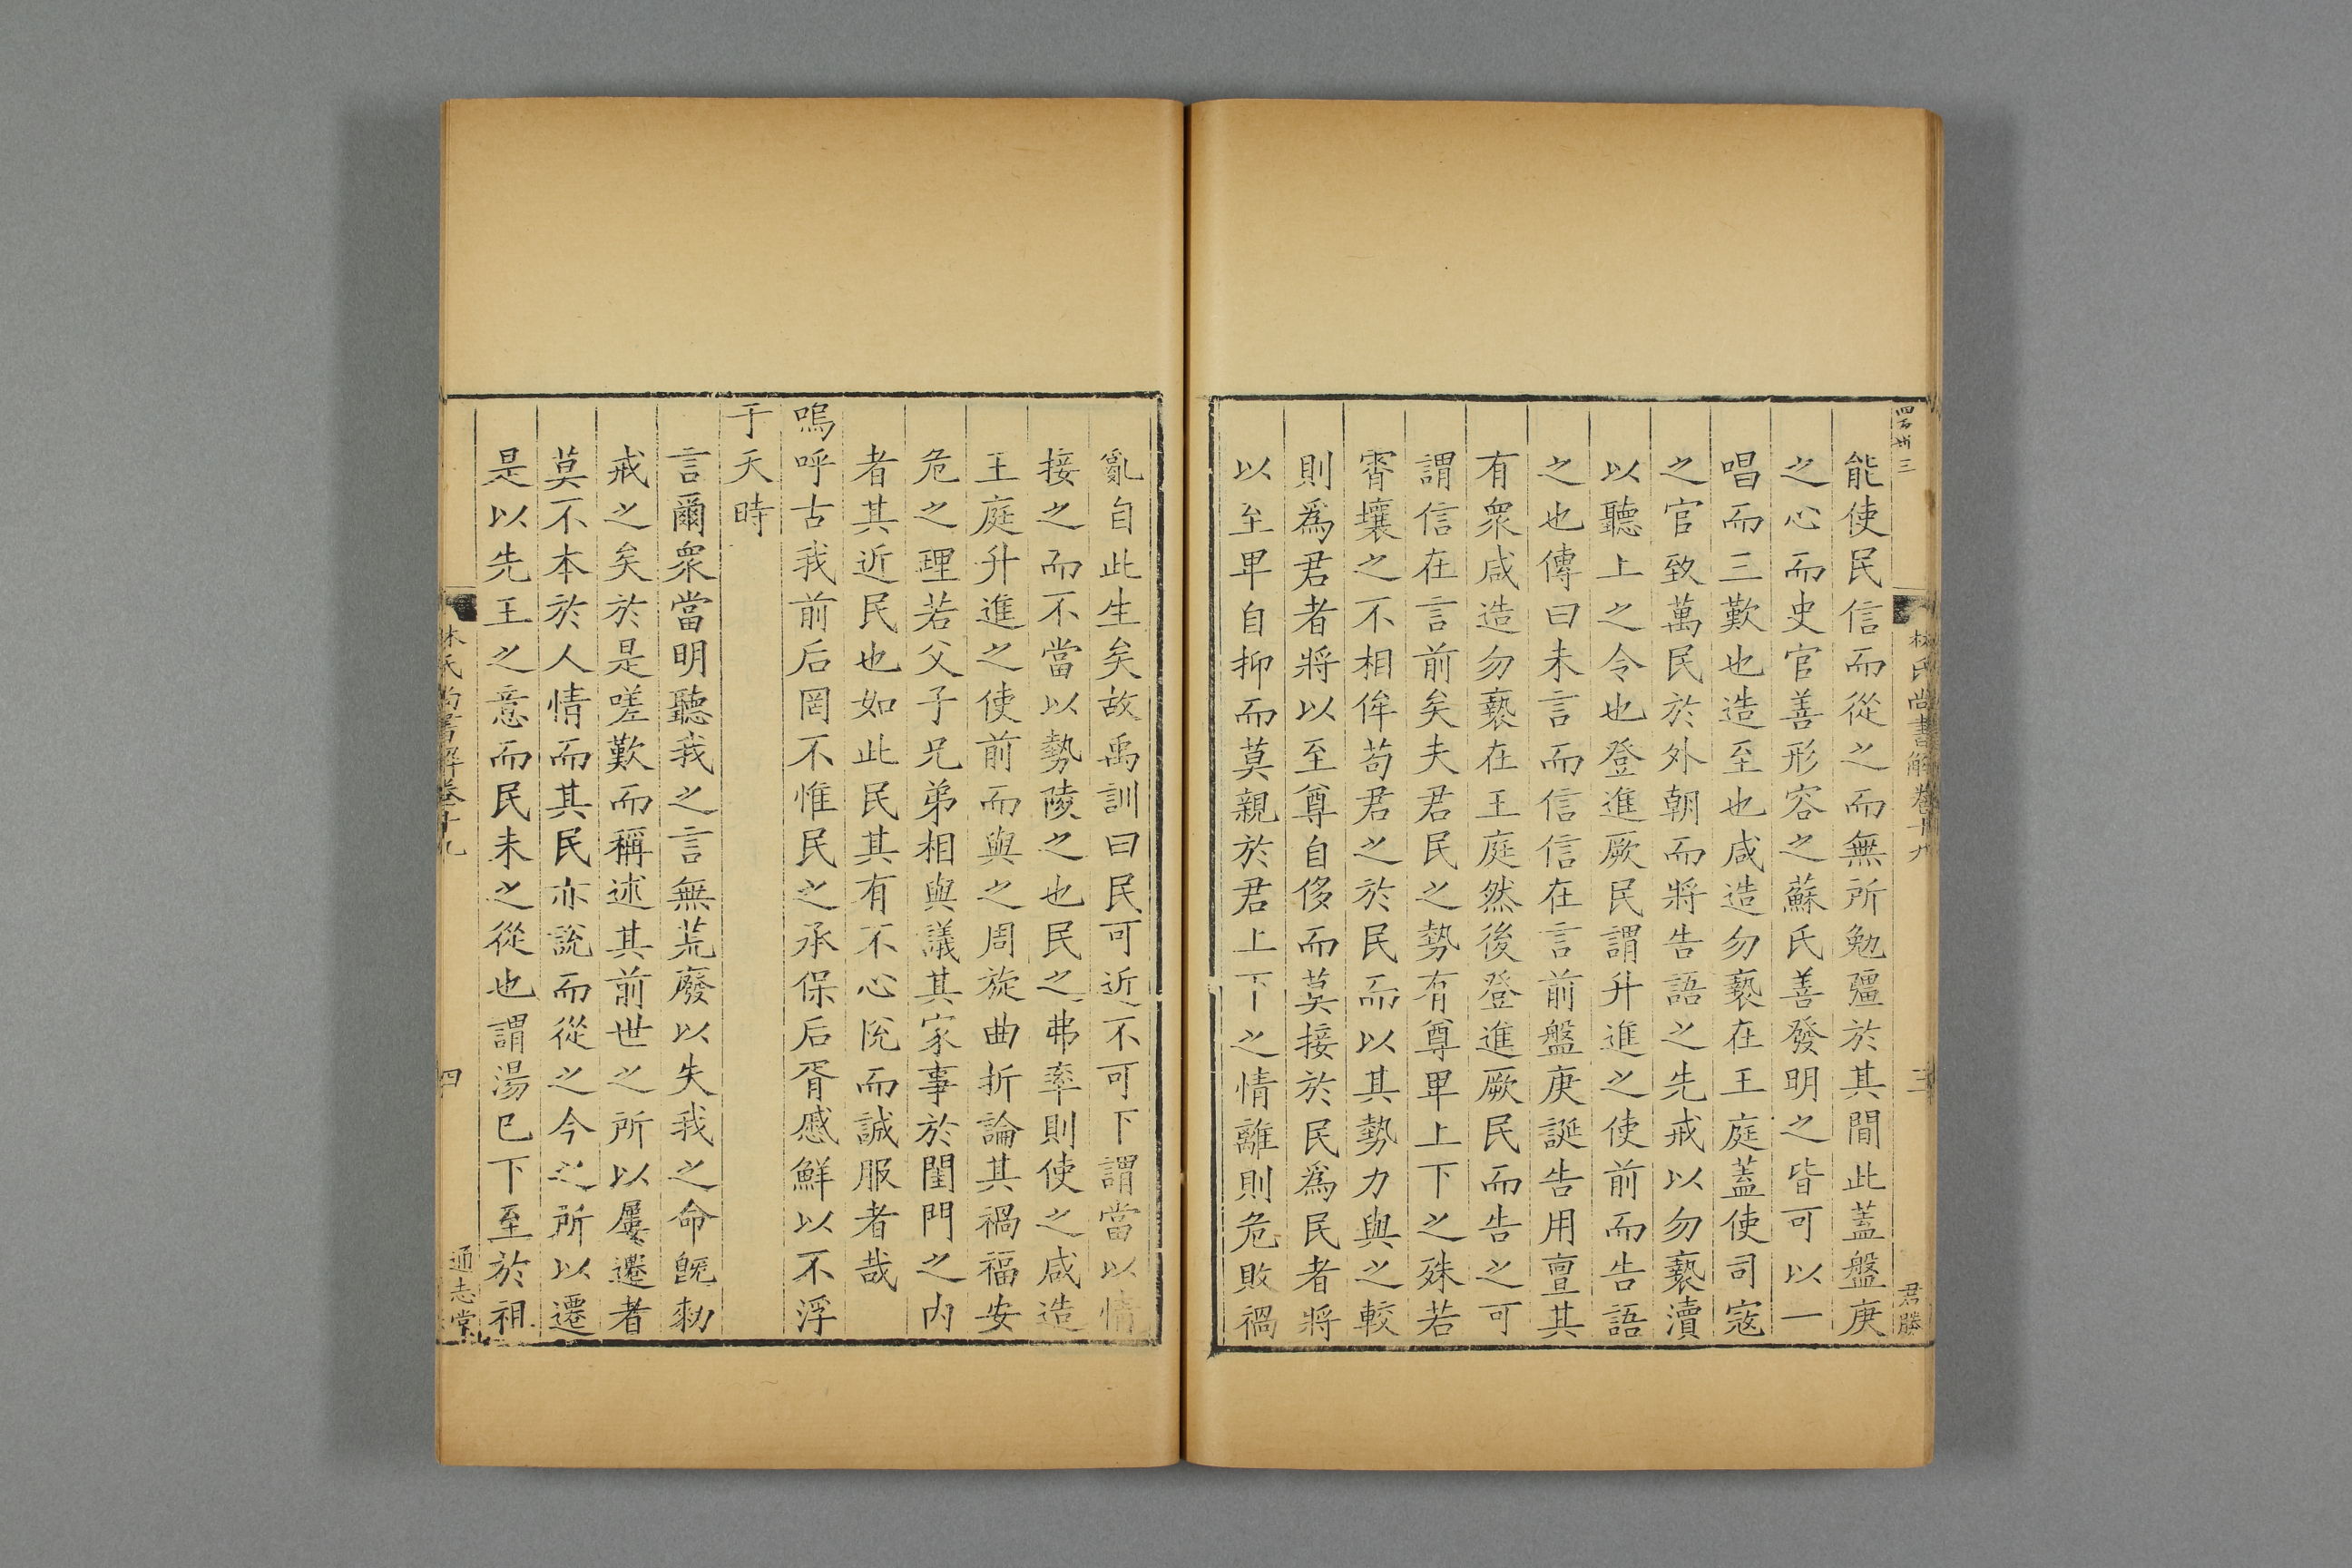 四百卅三
林氏尚書解卷十九
三
君勝
能使民信而從之而無所勉彊於其間此蓋盤庚
之心而史官善形容之蘇氏善發明之皆可以一
唱而三歎也造至也咸造勿褻在王庭蓋使司寇
之官致萬民於外朝而將告語之先戒以勿褻瀆
以聽上之令也登進厥民謂升進之使前而告語
之也傳曰未言而信信在言前盤庚誕告用亶其
有衆咸造勿褻在王庭然後登進厥民而告之可
謂信在言前矣夫君民之勢有尊卑上下之殊若
霄壤之不相侔苟君之於民而以其勢力與之較
則爲君者將以至尊自侈而莫接於民爲民者將
以至卑自抑而莫親於君上下之情離則危敗禍
亂自此生矣故禹訓曰民可近不可下謂當以情
接之而不當以勢陵之也民之弗率則使之咸造
王庭升進之使前而與之周旋曲折論其禍福安
危之理若父子兄弟相與議其家事於閨門之內
者其近民也如此民其有不心悅而誠服者哉
嗚呼古我前后罔不惟民之承保后胥慼鮮以不浮
于天時
言爾衆當明聽我之言無荒廢以失我之命旣勑
戒之矣於是嗟歎而稱述其前世之所以屢遷者
莫不本於人情而其民亦說而從之今之所以遷
是以先王之意而民未之從也謂湯已下至於祖
林氏尚書解卷十九
四
通志堂